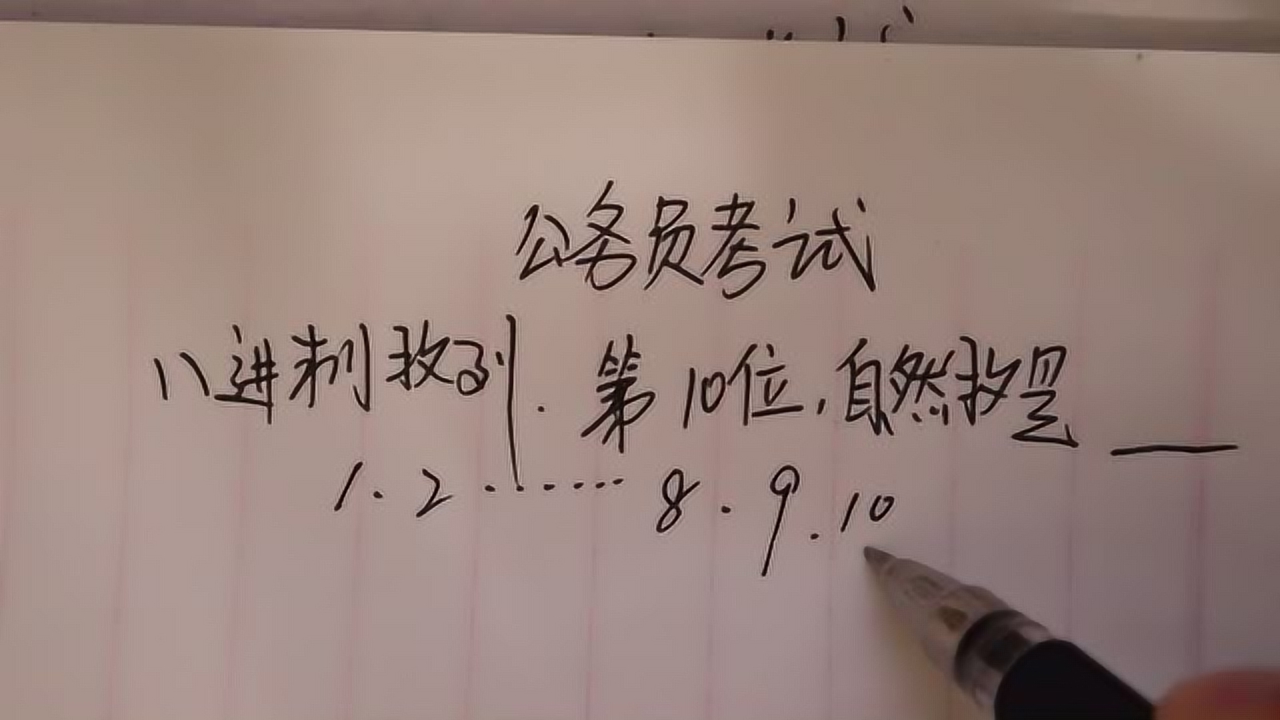 公务员考试
八进制数列.第10位,自然数是___
1.2.......8.9.10